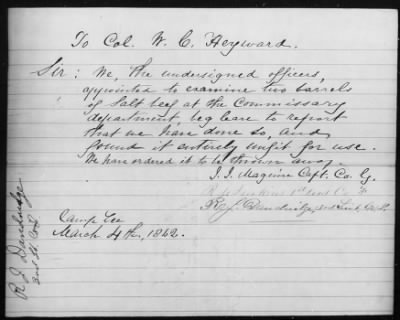 To Col. W. C. Heyward.
Sir: We, the undersigned officers,
appointed to examine two barrels
of Salt beef at the Commissary
department, beg leave to report
that we have done so, and
found it entirely unfit for use.
We have ordered it to be thrown away.
J. J. Maguire Capt. Co. G.
R. J. Jenkins 1st Lieut Co.
R. J. Dandridge, 2nd Lieut.
Camp Lee
March 4th, 1862.
R J Dandridge
2nd Lt.